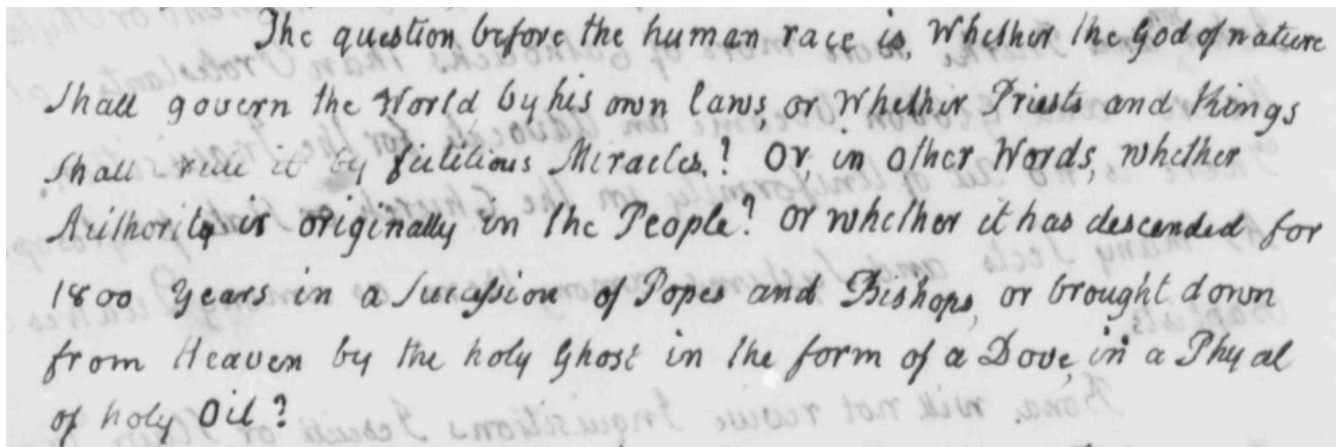 The question before the human race is, Whether the God of nature
Shall govern the World by his own laws, or Whether Priests and Kings
Shall rule it by fictitious Miracles.? Or, in other Words, whether
Authority is originally in the People? or whether it has descended for
1800 Years in a Succession of Popes and Bishops, or brought down
from Heaven by the holy Ghost in the form of a Dove, in a Phyal
of holy Oil?